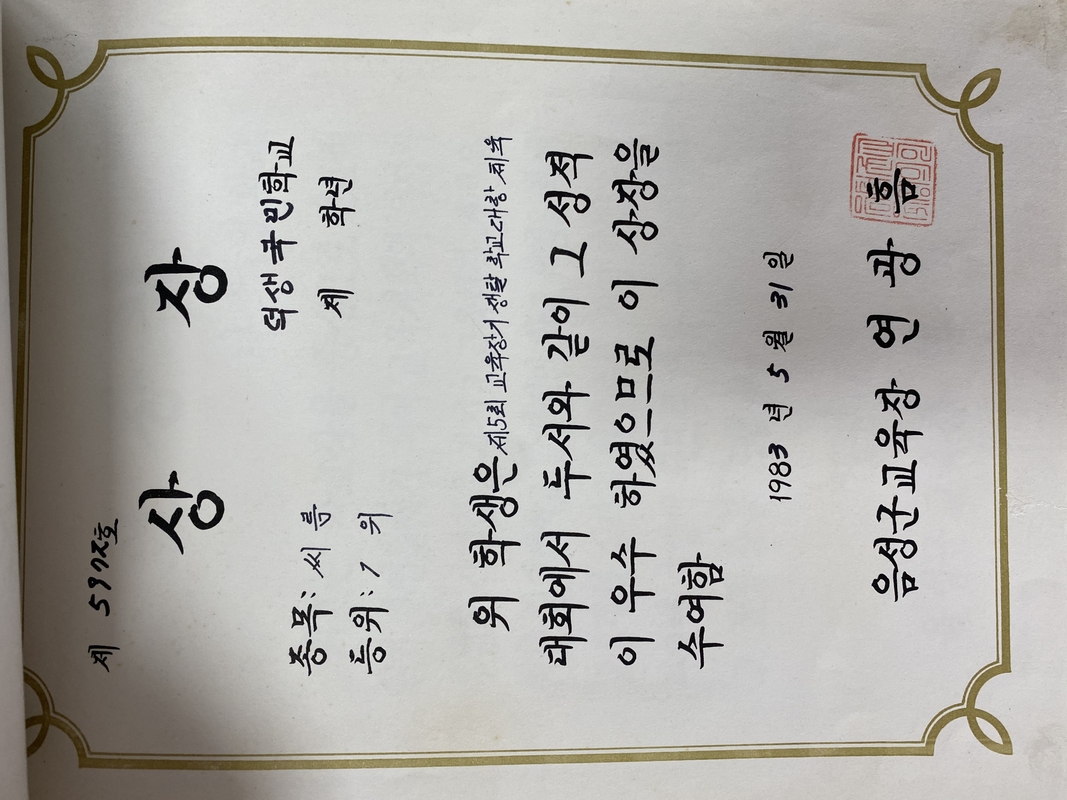 제 597호
상 장
덕생국민학교
제 학년
종목: 씨름
등위: 1 위
위 학생은 제5회 교육장기 쟁탈 학교대항 체육
대회에서 두서와 같이 그 성적
이 우수 하였으므로 이 상장을
수여함
1983 년 5 월 31 일
음성군교육장 연 광 흠